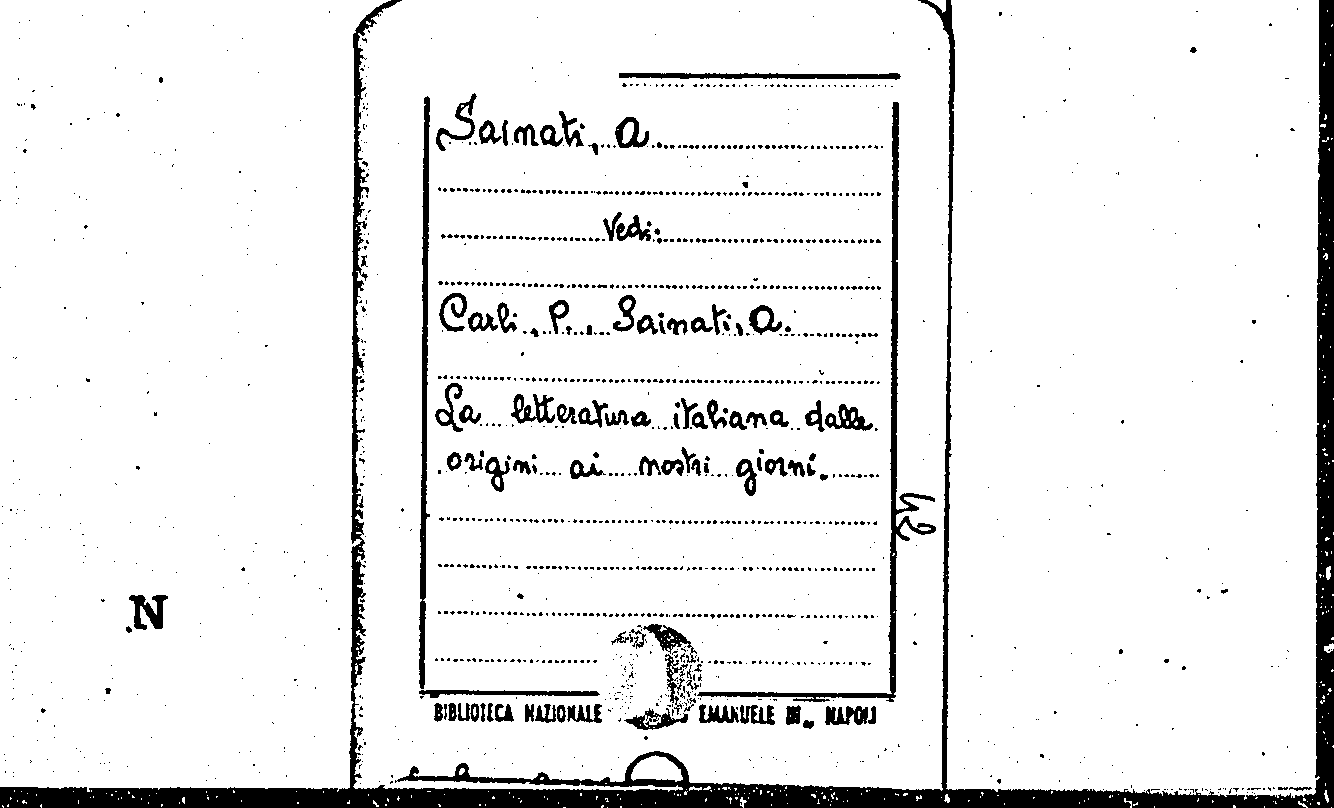 Sainati, A.
Vedi:
Carli, P., Sainati, A.
La letteratura italiana dalle
origini ai nostri giorni.
N
BIBLIOTECA NAZIONALE EMANUELE III„ NAPOLI